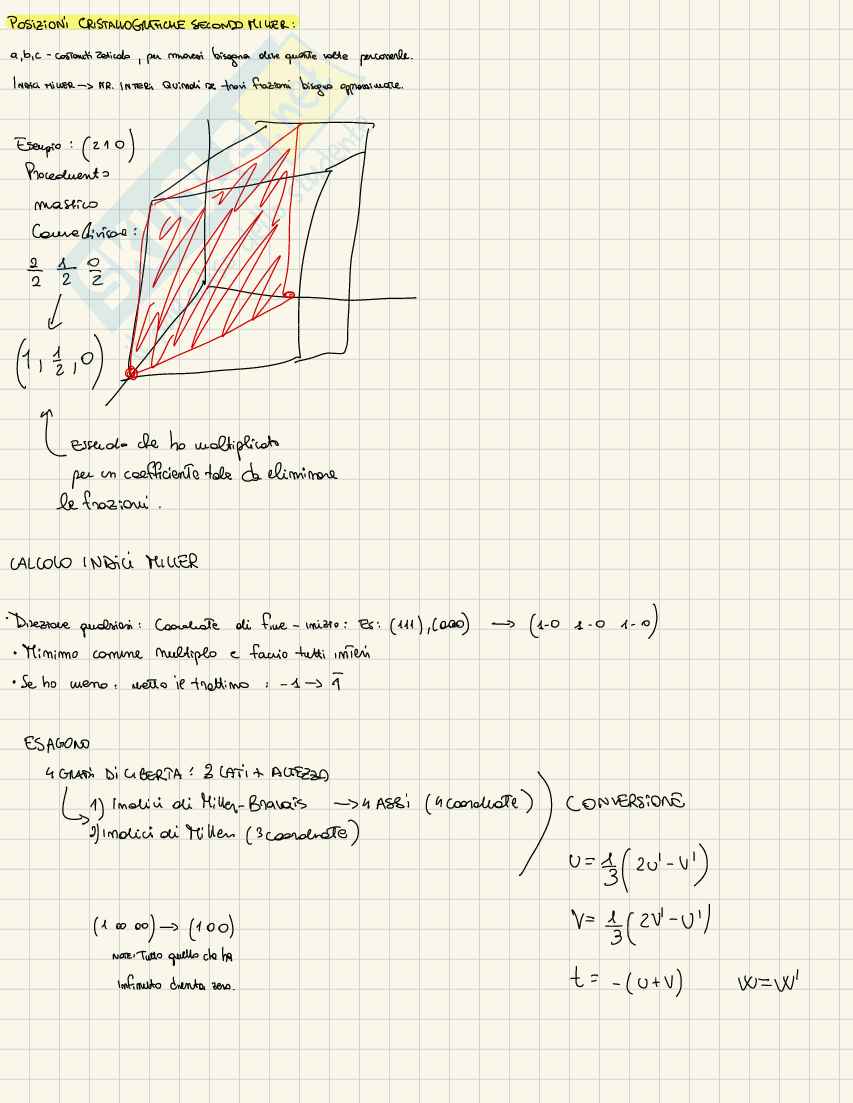 POSIZIONI CRISTALLOGRAFICHE SECONDO MILLER:
a,b,c - costanti reticolo, per muoversi bisogna dire quante volte percorrerle.
INDICI MILLER → NR. INTERI. Quindi se trovi frazioni bisogna approssimare.
Esempio: (210)
Procedimento
mastico
Come divisore:
2/2 1/2 0/2
(1, 1/2, 0)
Essendo che ho moltiplicato
per un coefficiente tale da eliminare
le frazioni.
CALCOLO INDICI MILLER
· Direzione qualsiasi: Coordinate di fine - inizio: Es: (111),(000) → (1-0 1-0 1-0)
· Minimo comune multiplo e faccio tutti interi
· Se ho meno: metto il trattino: -1 → 1̅
ESAGONO
4 GRADI DI LIBERTA: 3 LATI + ALTEZZA
1) Indici di Miller-Bravais → 4 ASSI (4 coordinate)
2) Indici di Miller (3 coordinate)
CONVERSIONE
U = 1/3 (2U' - V')
V = 1/3 (2V' - U')
t = -(U+V) W = W'
(1 ∞ ∞) → (100)
NOTE: Tutto quello che ha
infinito diventa zero.
SKUOLA.net
dello studente